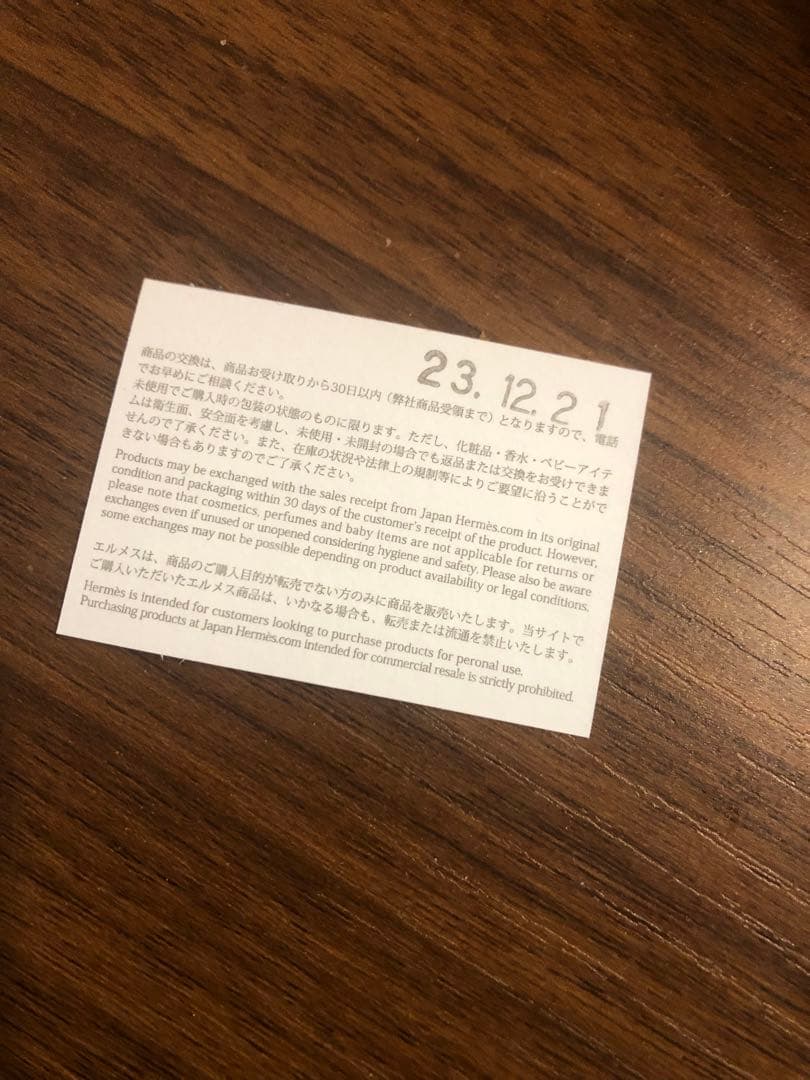 23.12.21
商品の交換は、商品お受け取りから30日以内（弊社商品受領まで）となりますので、電話
でお早めにご相談ください。
未使用でご購入時の包装の状態のものに限ります。ただし、化粧品・香水・ベビーアイテ
ムは衛生面、安全面を考慮し、未使用・未開封の場合でも返品または交換をお受けできま
せんので了承ください。また、在庫の状況や法律上の規制等によりご要望に沿うことがで
きない場合もありますのでご了承ください。
Products may be exchanged with the sales receipt from Japan Hermès.com in its original
condition and packaging within 30 days of the customer's receipt of the product. However,
please note that cosmetics, perfumes and baby items are not applicable for returns or
exchanges even if unused or unopened considering hygiene and safety. Please also be aware
some exchanges may not be possible depending on product availability or legal conditions.
エルメスは、商品のご購入目的が転売でない方のみに商品を販売いたします。当サイトで
ご購入いただいたエルメス商品は、いかなる場合も、転売または流通を禁止いたします。
Hermès is intended for customers looking to purchase products for peronal use.
Purchasing products at Japan Hermès.com intended for commercial resale is strictly prohibited.